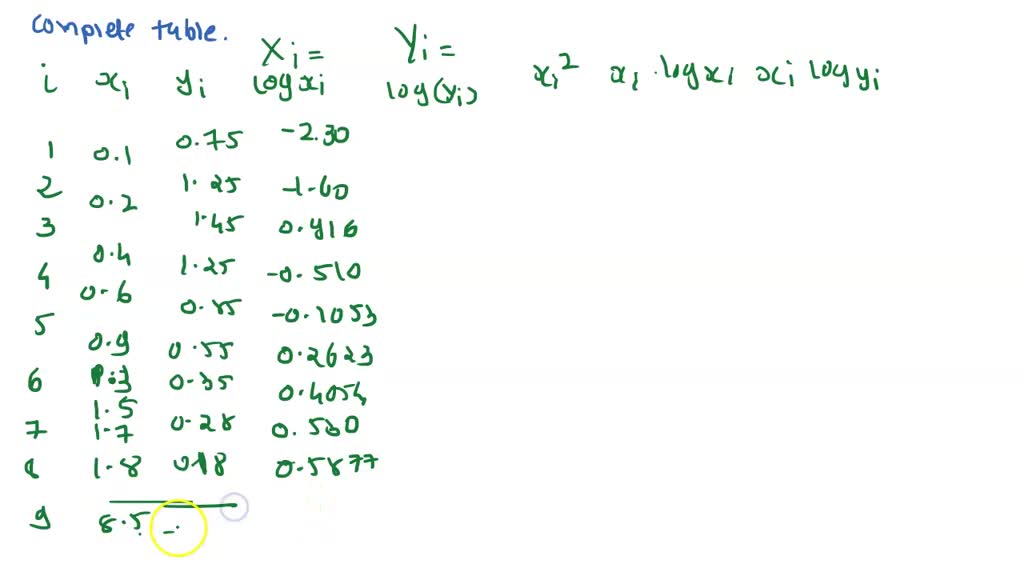 complete table.
i xi yi Xi = log xi Yi = log(yi) xi² xi . log xi xi log yi
1 0.1 0.75 -2.30
2 0.2 1.25 -1.60
3 0.4 1.45 0.916
4 0.6 1.25 -0.510
5 0.9 0.85 -0.1053
6 1.3 0.55 0.2623
7 1.5 0.35 0.4054
8 1.7 0.28 0.530
9 1.8 0.18 0.5877
8.5 -